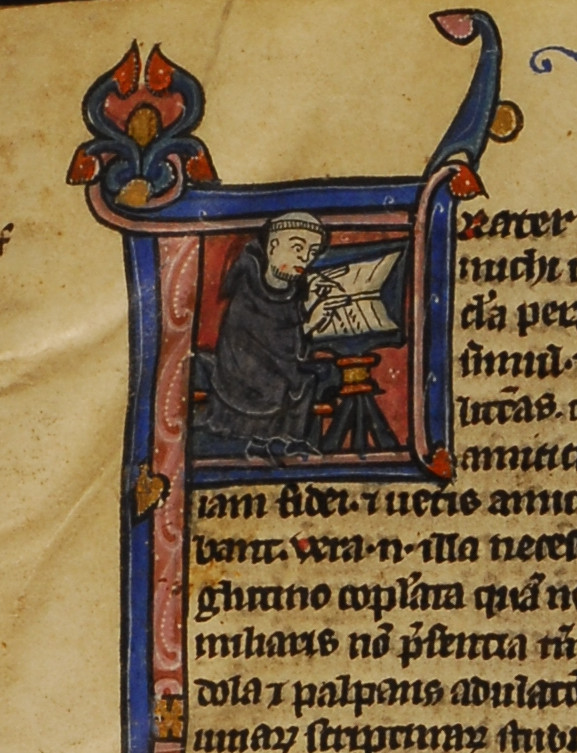 Frater
michi
cl̃a per
simul·
litt̃as.
amicic
iam fidei· ⁊ uet̾is amic
bant. vera·n· illa neces
glutino cop̃lata quã n
miliaris nõ p̃sentia tñ
dola ⁊ palpans adulatõ
uinaꝝ scripturaꝝ stud